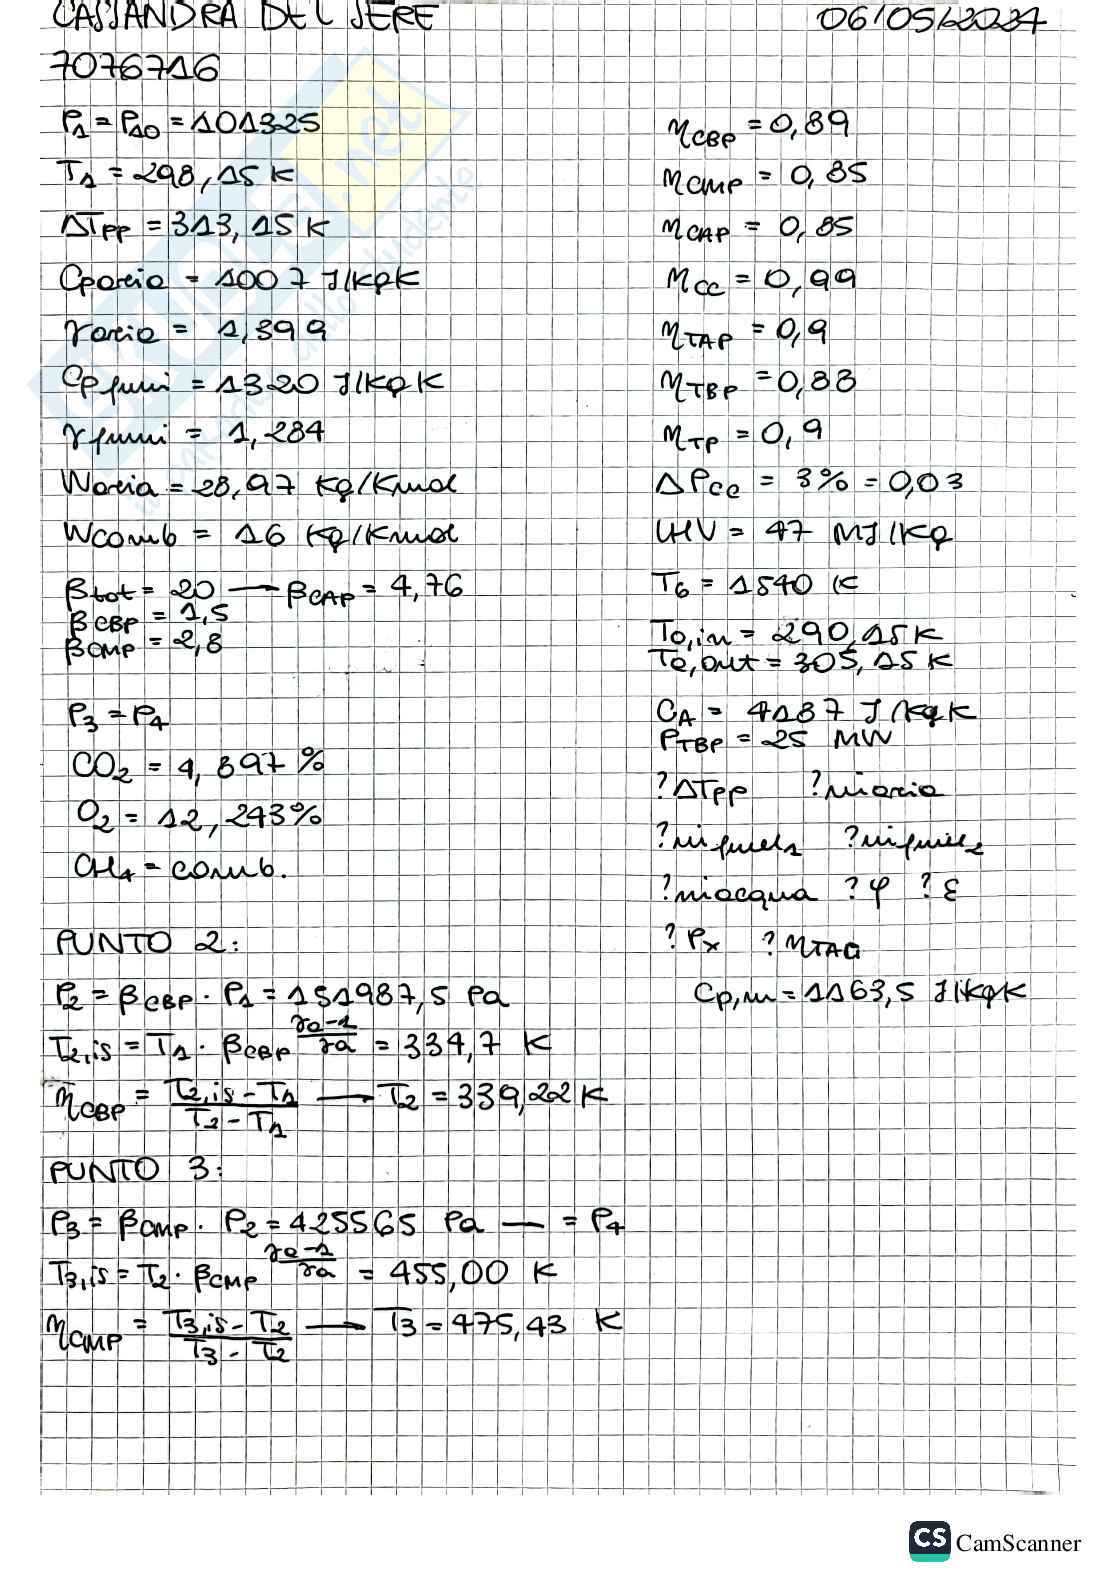 CASSANDRA DEL SERE 06/05/2024
7076716
P1 = P10 = 101325
T1 = 298,15 K
ΔTPP = 313,15 K
Cparia = 1007 J/kgK
γaria = 1,399
Cpfumi = 1320 J/kgK
γfumi = 1,284
Waria = 28,97 kg/kmol
Wcomb = 16 kg/kmol
βtot = 20 → βCAP = 4,76
βCBP = 1,5
βCMP = 2,8
P3 = P4
CO2 = 4,897 %
O2 = 12,243%
CH4 = comb.
ηCBP = 0,89
ηCMP = 0,85
ηCAP = 0,85
ηCC = 0,99
ηTAP = 0,9
ηTBP = 0,88
ηTP = 0,9
ΔPCC = 3% = 0,03
LHV = 47 MJ/kg
T6 = 1540 K
Ta,in = 290,15 K
Ta,out = 305,15 K
CA = 4187 J/kgK
PTBP = 25 MW
? ΔTPP ? ṁaria
? ṁfuel1 ? ṁfuel2
? ṁacqua ? φ ? ε
? Px ? ηTAG
Cp,m = 1163,5 J/kgK
PUNTO 2:
P2 = βCBP · P1 = 151987,5 Pa
T2,is = T1 · βCBP^(γa-1/γa) = 334,7 K
ηCBP = T2,is - T1 / T2 - T1 → T2 = 339,22 K
PUNTO 3:
P3 = βCMP · P2 = 425565 Pa — = P4
T3,is = T2 · βCMP^(γa-1/γa) = 455,00 K
ηCMP = T3,is - T2 / T3 - T2 → T3 = 475,43 K
CS CamScanner